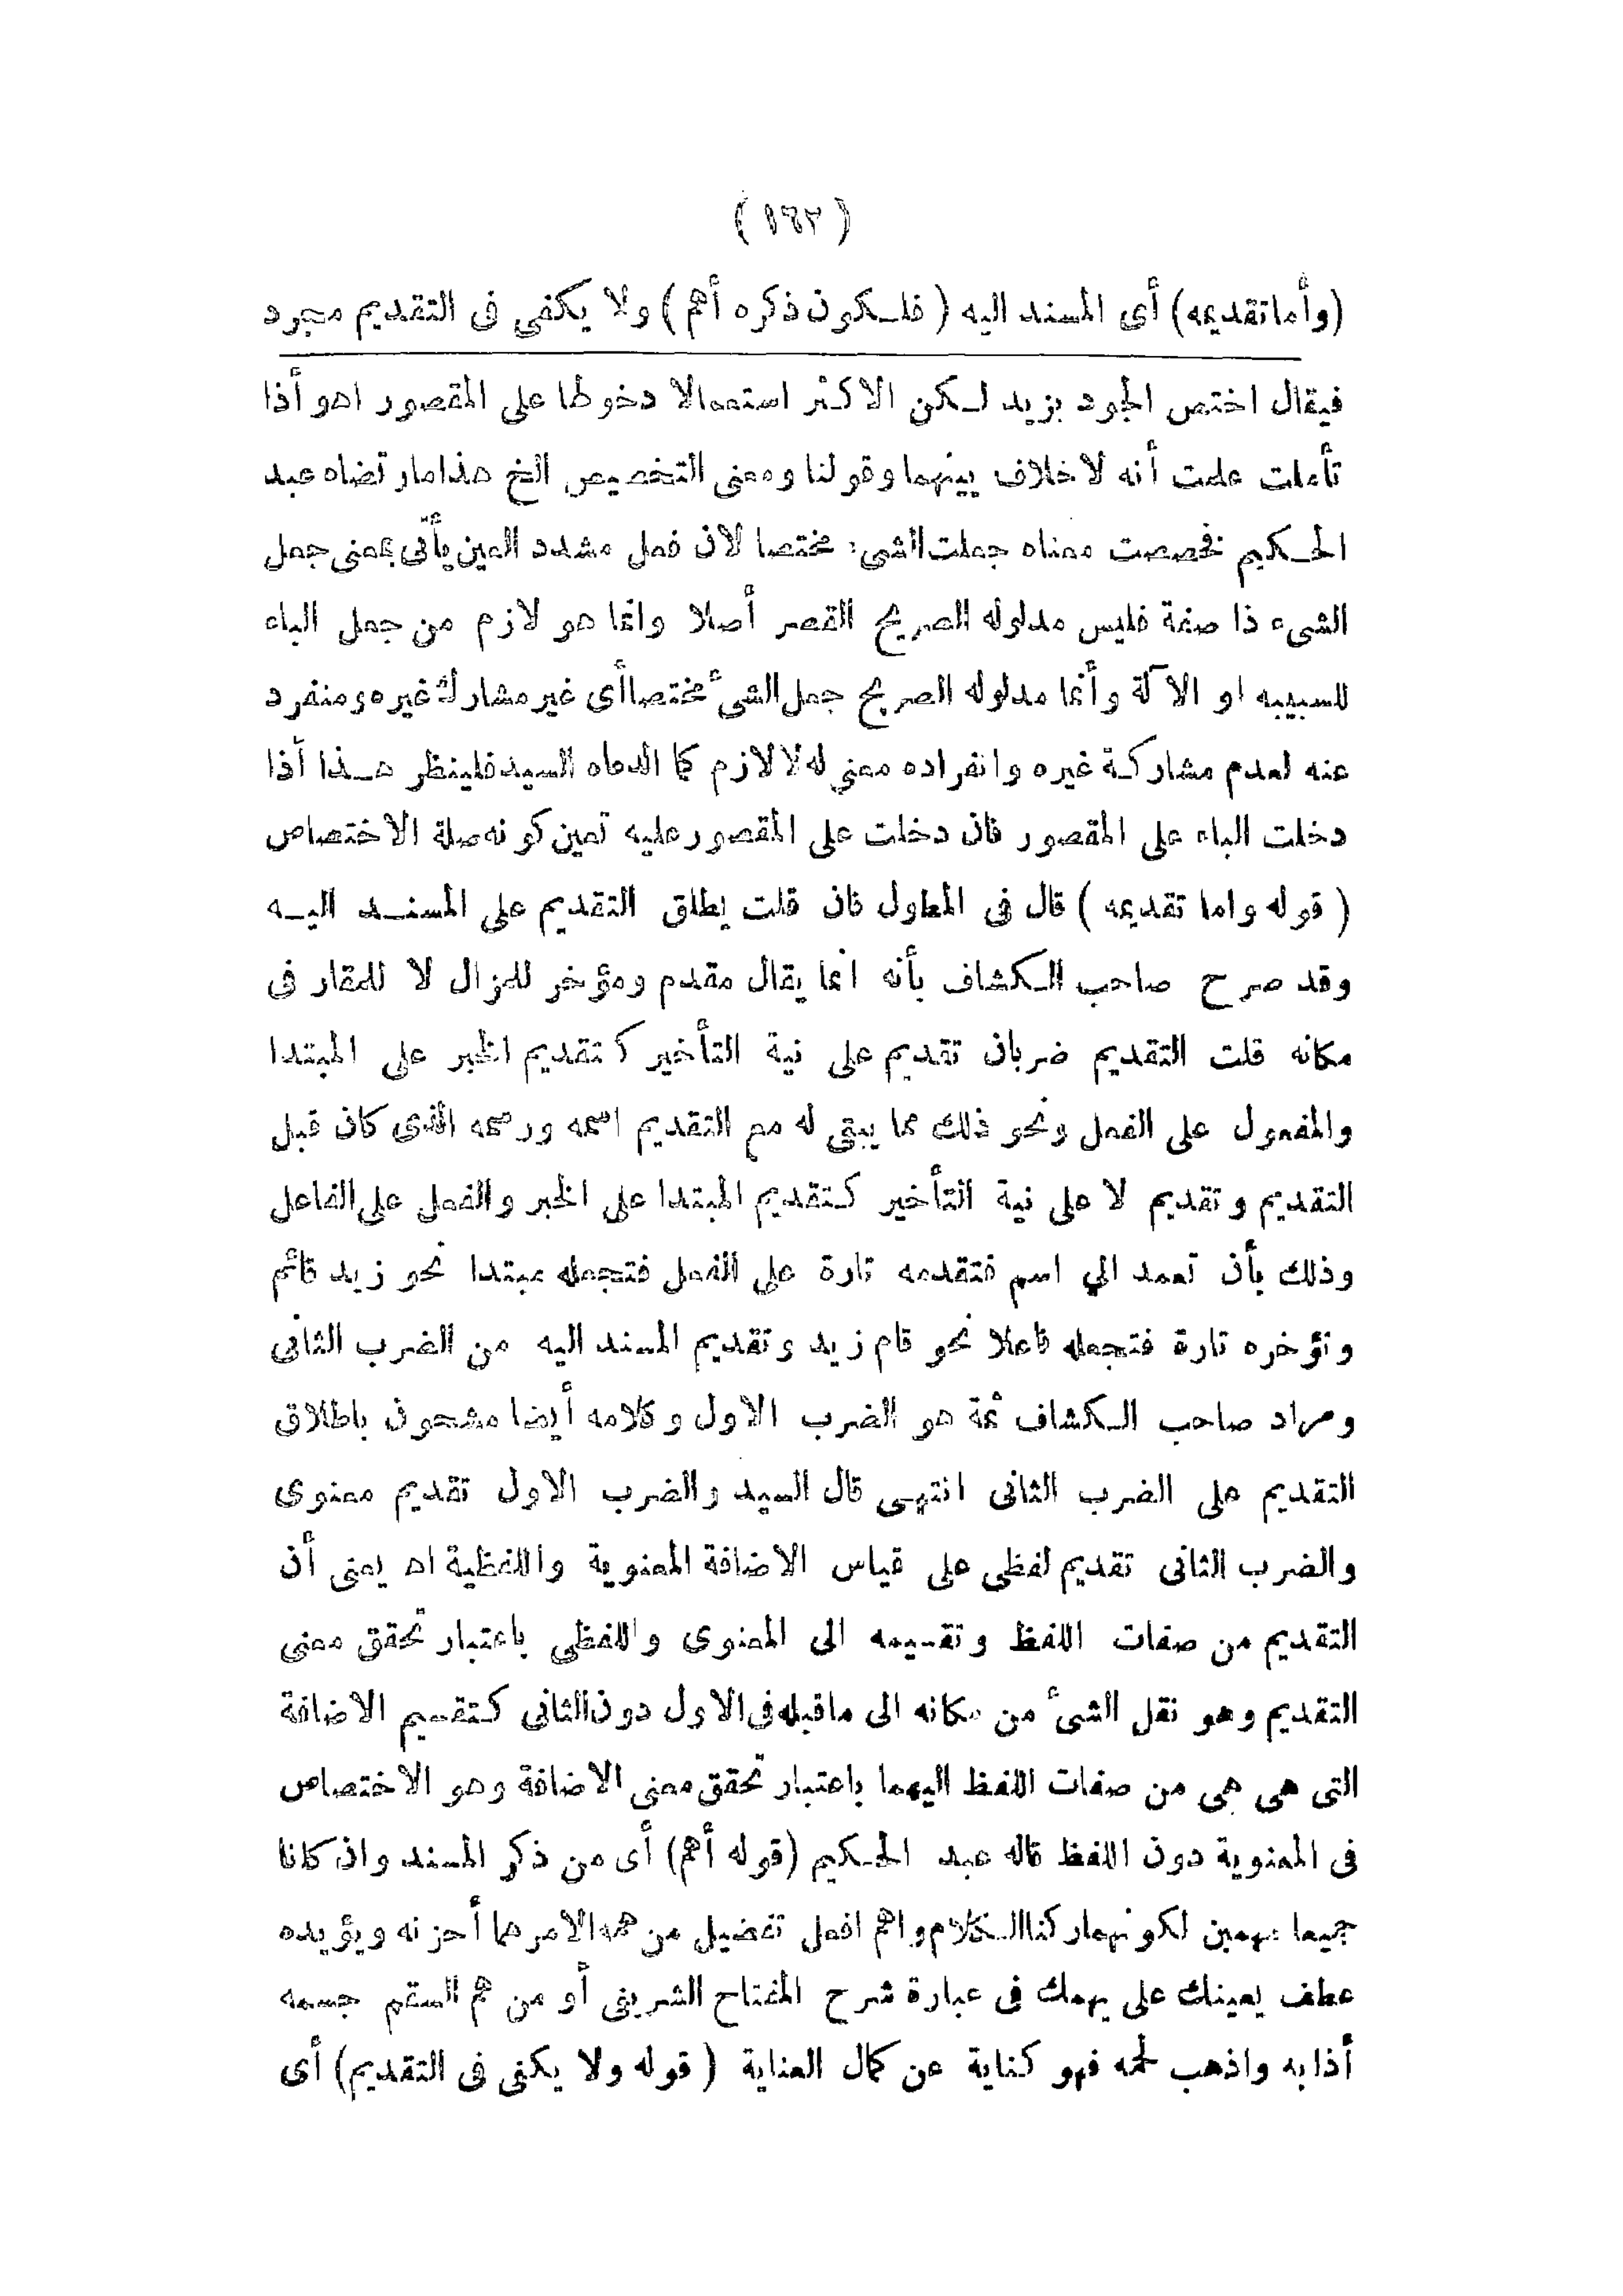 (١٦٢)
(وأما تقديمه) أى المسند اليه (فلكون ذكره أهم) ولا يكفى فى التقديم مجرد
فيقال اختص الجود بزيد لكن الاكثر استعمالا دخولها على المقصور اهو أذا
تأملت علمت أنه لاخلاف بينهما وقولنا ومعنى التخصيص الخ هذا ما ارتضاه عبد
الحكيم فخصصت معناه جعلت الشىء مختصا لان فعل مشدد العين يأتى بمعنى جعل
الشىء ذا صفة فليس مدلوله الصريح القصر أصلا وانما هو لازم من جعل الباء
للسببيه او الآلة وأنما مدلوله الصريح جعل الشئ مختصا أى غير مشارك غيره ومنفرد
عنه لعدم مشاركة غيره وانفراده معنى له لا لازم كما الدعاه السيد فلينظر هذا أذا
دخلت الباء على المقصور فان دخلت على المقصور عليه تعين كونه صلة الاختصاص
(قوله واما تقديمه) قال فى المطول فان قلت يطلق التقديم على المسند اليه
وقد صرح صاحب الكشاف بأنه انما يقال مقدم ومؤخر للمزال لا للقار فى
مكانه قلت التقديم ضربان تقديم على نية التأخير كتقديم الخبر على المبتدا
والمفعول على الفعل ونحو ذلك مما يبقى له مع التقديم اسمه ورسمه الذى كان قبل
التقديم وتقديم لا على نية التأخير كتقديم المبتدا على الخبر والفعل على الفاعل
وذلك بأن تعمد الي اسم فتقدمه تارة على الفعل فتجعله مبتدا نحو زيد قائم
وتؤخره تارة فتجعله فاعلا نحو قام زيد وتقديم المسند اليه من الضرب الثانى
ومراد صاحب الكشاف ثمة هو الضرب الاول وكلامه أيضا مشحون باطلاق
التقديم على الضرب الثانى انتهى قال السيد والضرب الاول تقديم معنوى
والضرب الثانى تقديم لفظى على قياس الاضافة المعنوية واللفظية اه يعنى أن
التقديم من صفات اللفظ وتقسيمه الى المعنوى واللفظى باعتبار تحقق معنى
التقديم وهو نقل الشئ من مكانه الى ماقبله فى الاول دون الثانى كتقسيم الاضافة
التى هى هى من صفات اللفظ اليهما باعتبار تحقق معنى الاضافة وهو الاختصاص
فى المعنوية دون اللفظ قاله عبد الحكيم (قوله أهم) أى من ذكر المسند وان كانا
جميعا مهمين لكونهما ركنا الكلام واهم افعل تفضيل من همه الامر هما أحزنه ويؤيده
عطف يعينك على يهمك فى عبارة شرح المفتاح الشريفى أو من هم السقم جسمه
أذابه واذهب لحمه فهو كناية عن كمال العناية (قوله ولا يكفى فى التقديم) أى